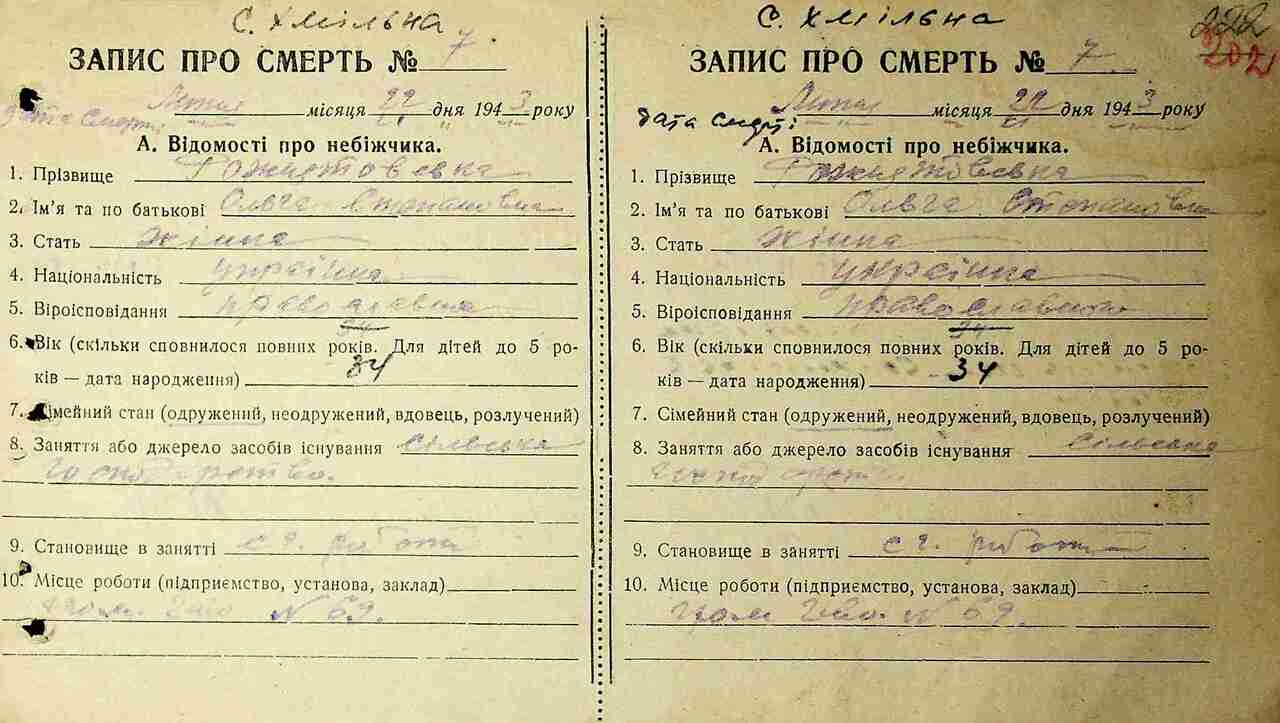 с. Хмільна
ЗАПИС ПРО СМЕРТЬ № 7
Лютня місяця 22 дня 1943 року
Дата смерті: 21 "
А. Відомості про небіжчика.
1. Прізвище
2. Ім'я та по батькові Ольга Степановна
3. Стать жінка
4. Національність українка
5. Віроісповідання православна
34
6. Вік (скільки сповнилося повних років. Для дітей до 5 ро-
ків — дата народження) 34
7. Сімейний стан (одружений, неодружений, вдовець, розлучений)
8. Заняття або джерело засобів існування сільське
господарство.
9. Становище в занятті с г. робот
10. Місце роботи (підприємство, установа, заклад)
гром. № 69.
с. Хмільна
222
202
ЗАПИС ПРО СМЕРТЬ № 7
Лютня місяця 22 дня 1943 року
Дата смерті: 21
А. Відомості про небіжчика.
1. Прізвище
2. Ім'я та по батькові Ольга Степановна
3. Стать жінка
4. Національність українка
5. Віроісповідання православна
34
6. Вік (скільки сповнилося повних років. Для дітей до 5 ро-
ків — дата народження) 34
7. Сімейний стан (одружений, неодружений, вдовець, розлучений)
8. Заняття або джерело засобів існування
9. Становище в занятті с г. робот
10. Місце роботи (підприємство, установа, заклад)
гром. № 69.